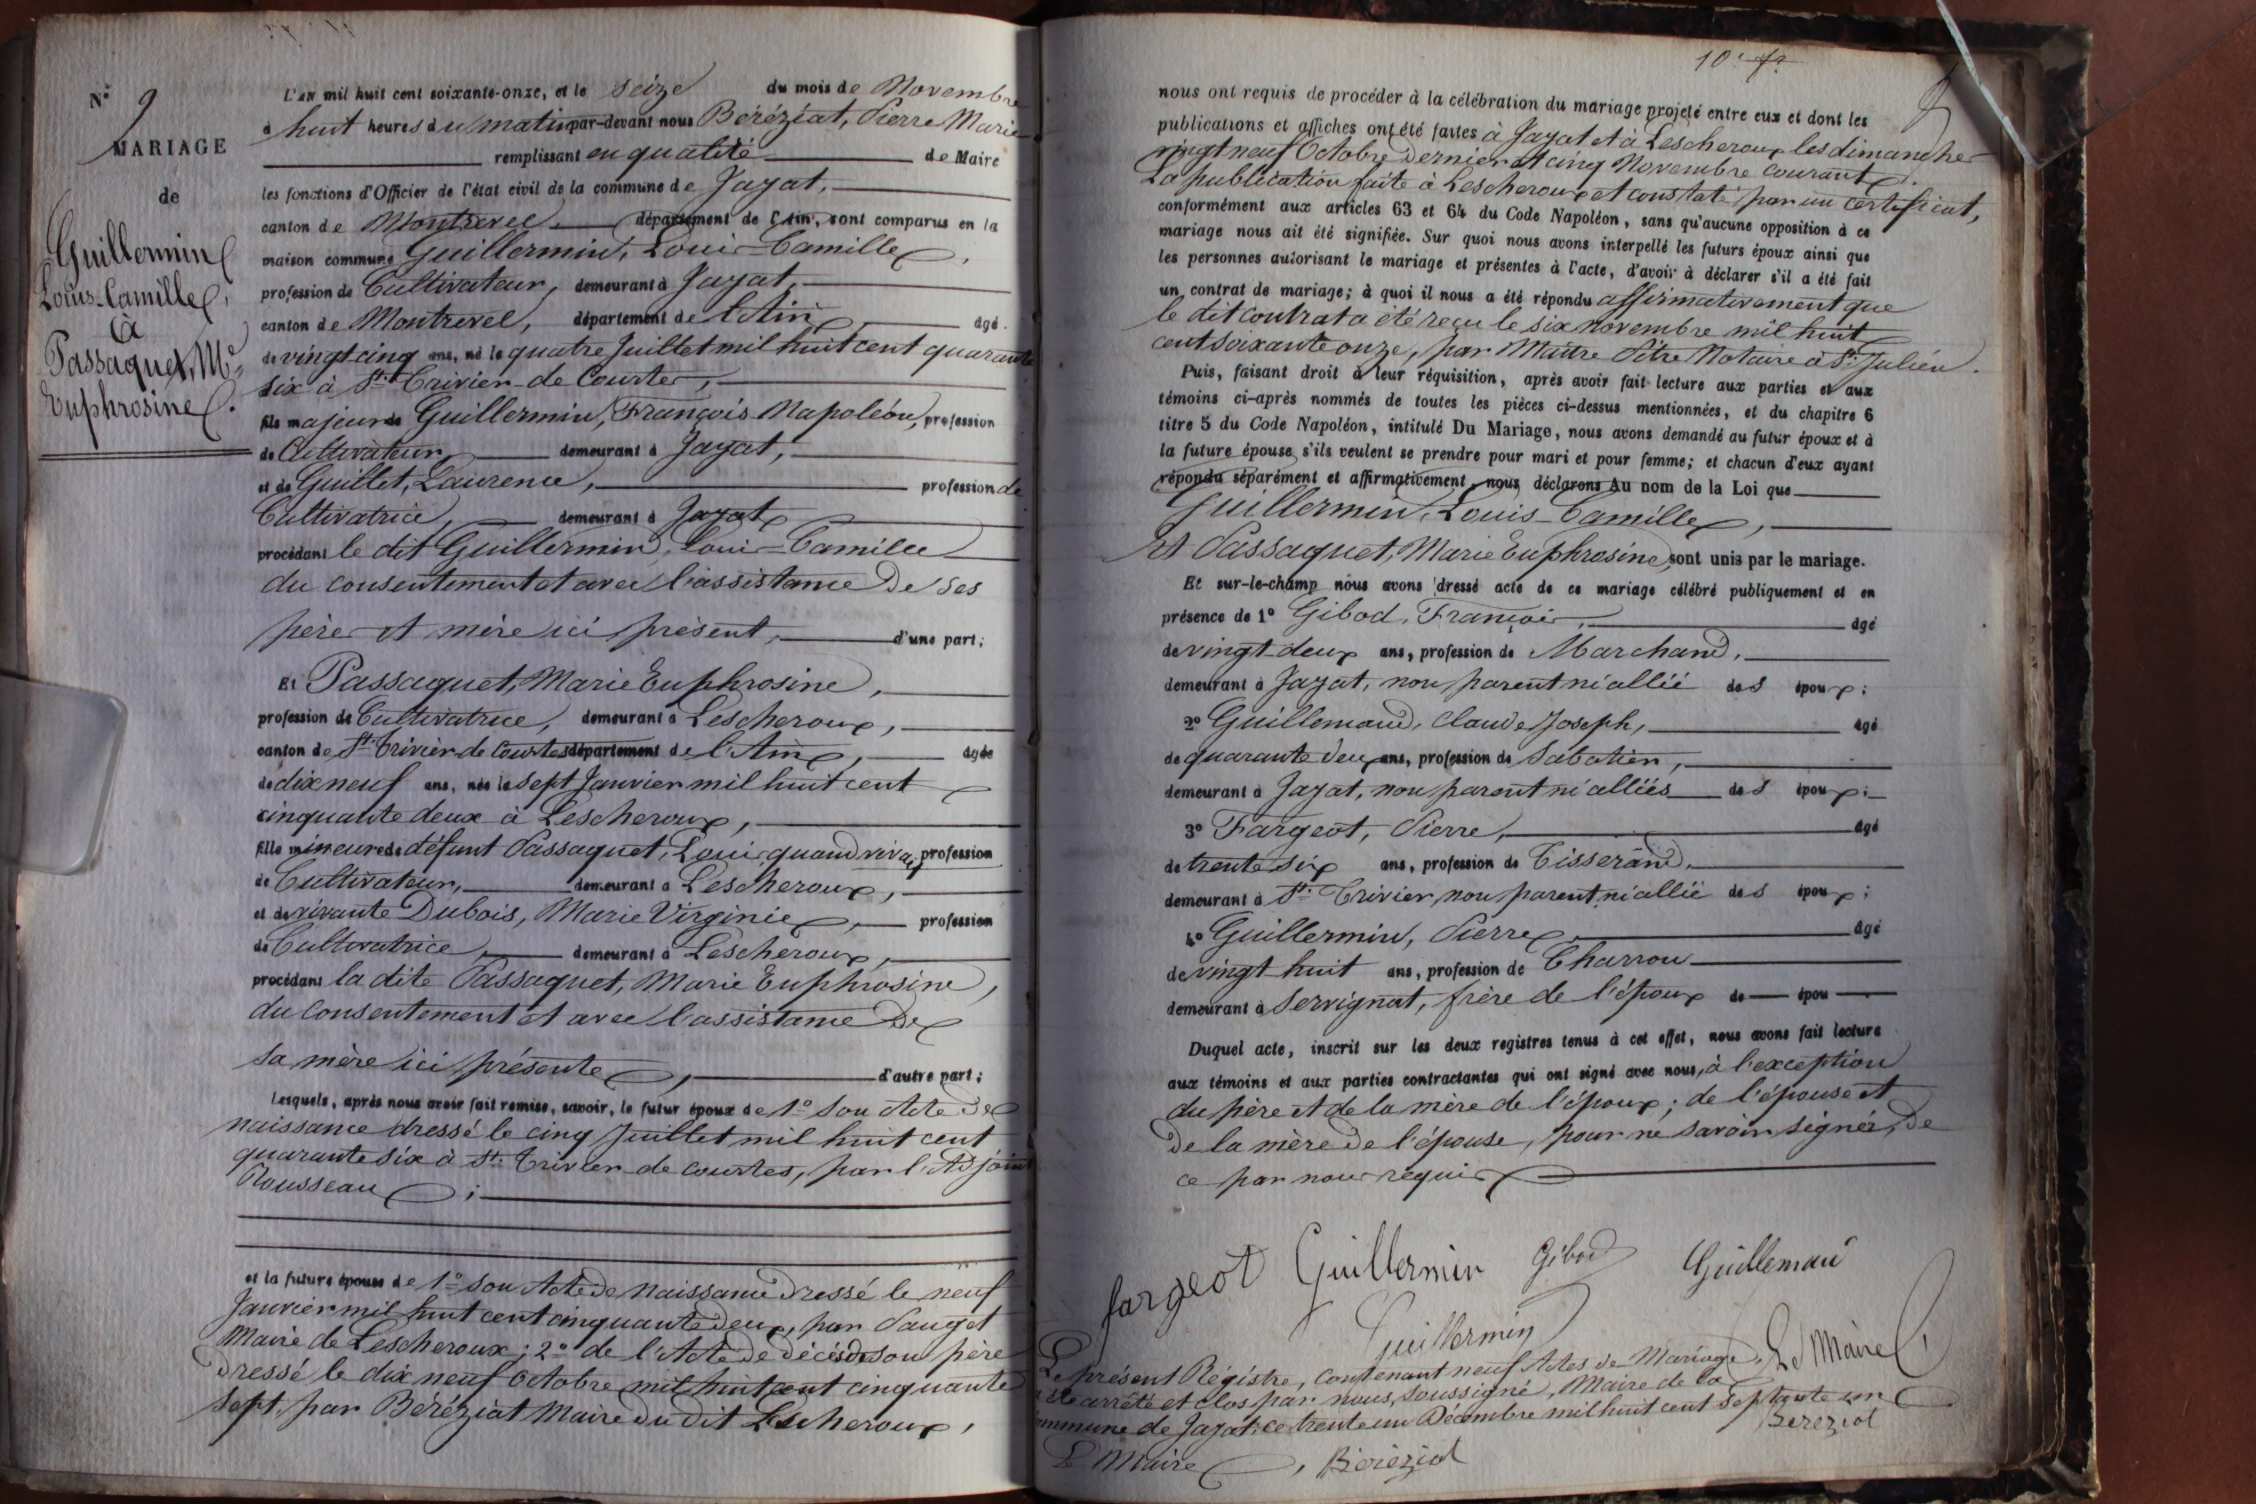 N° 9
MARIAGE
de
Guillermin
Louis-Camille,
à
Passaquet, Mie
Euphrosine.
L'an mil huit cent soixante-onze, et le seize du mois de Novembre
à huit heures du matin par-devant nous Béréziat, Pierre Marie
remplissant en qualité de Maire
les fonctions d'Officier de l'état civil de la commune de Jayat,
canton de Montrevel, département de l'Ain, sont comparus en la
maison commune Guillermin, Louis-Camille,
profession de Cultivateur, demeurant à Jayat,
canton de Montrevel, département de l'Ain, âgé
de vingt cinq ans, né le quatre Juillet mil huit cent quarante
six à St Trivier-de Courtes,
fils majeur de Guillermin, François Napoléon, profession
de Cultivateur, demeurant à Jayat,
et de Guillet, Laurence, profession de
Cultivatrice, demeurant à Jayat
procédant le dit Guillermin, Louis-Camille
du consentement et avec l'assistance de ses
père et mère ici présent, d'une part;
Et Passaquet, Marie Euphrosine,
profession de Cultivatrice, demeurant à Lescheroux,
canton de St Trivier de Courtes département de l'Ain, âgée
de dix neuf ans, née le sept Janvier mil huit cent
cinquante deux à Lescheroux,
fille mineure de défunt Passaquet, Louis, quand vivait profession
de Cultivateur, demeurant à Lescheroux,
et de vivante Dubois, Marie Virginie, profession
de Cultivatrice, demeurant à Lescheroux,
procédant la dite Passaquet, Marie Euphrosine,
du consentement et avec l'assistance de
sa mère ici présente, d'autre part;
Lesquels, après nous avoir fait remise, savoir, le futur époux de 1° son Acte de
naissance dressé le cinq Juillet mil huit cent
quarante six à St Trivier de courtes, par l'Adjoint
Rousseau;
et la future épouse de 1° son Acte de naissance dressé le neuf
Janvier mil huit cent cinquante deux, par Pauget
Maire de Lescheroux; 2° de l'Acte de décès de son père
dressé le dix neuf Octobre mil huit cent cinquante
sept, par Béréziat Maire du dit Lescheroux,
10e fo
nous ont requis de procéder à la célébration du mariage projeté entre eux et dont les
publications et affiches ont été faites à Jayat et à Lescheroux les dimanches
vingt neuf Octobre dernier et cinq Novembre courant.
La publication faite à Lescheroux et constaté par un certificat,
conformément aux articles 63 et 64 du Code Napoléon, sans qu'aucune opposition à ce
mariage nous ait été signifiée. Sur quoi nous avons interpellé les futurs époux ainsi que
les personnes autorisant le mariage et présentes à l'acte, d'avoir à déclarer s'il a été fait
un contrat de mariage; à quoi il nous a été répondu affirmativement que
le dit contrat a été reçu le six novembre mil huit
cent soixante onze, par Maître Pitre Notaire à St Julien.
Puis, faisant droit à leur réquisition, après avoir fait lecture aux parties et aux
témoins ci-après nommés de toutes les pièces ci-dessus mentionnées, et du chapitre 6
titre 5 du Code Napoléon, intitulé Du Mariage, nous avons demandé au futur époux et à
la future épouse s'ils veulent se prendre pour mari et pour femme; et chacun d'eux ayant
répondu séparément et affirmativement, nous déclarons Au nom de la Loi que
Guillermin, Louis-Camille,
et Passaquet, Marie Euphrosine, sont unis par le mariage.
Et sur-le-champ nous avons dressé acte de ce mariage célébré publiquement et en
présence de 1° Gibod, François, âgé
de vingt-deux ans, profession de Marchand,
demeurant à Jayat, non parent ni allié des époux;
2° Guillemaud, Claude Joseph, âgé
de quarante deux ans, profession de Sabotier,
demeurant à Jayat, non parent ni alliés des époux;
3° Fargeot, Pierre, âgé
de trente six ans, profession de Tisserand,
demeurant à St Trivier, non parent ni allié des époux;
4° Guillermin, Pierre, âgé
de vingt huit ans, profession de Charron
demeurant à Servignat, frère de l'époux de épou
Duquel acte, inscrit sur les deux registres tenus à cet effet, nous avons fait lecture
aux témoins et aux parties contractantes qui ont signé avec nous, à l'exception
du père et de la mère de l'époux; de l'épouse et
de la mère de l'épouse, pour ne savoir signer, de
ce par nous requis
fargeot Guillermin Gibod Guillemau
Guillermin
Le Maire
Le présent Régistre, contenant neuf Actes de Mariage,
a été arrêté et clos par nous, soussigné, Maire de la
commune de Jayat, ce trente un Décembre mil huit cent septante un
Béréziat
Le Maire, Béréziat